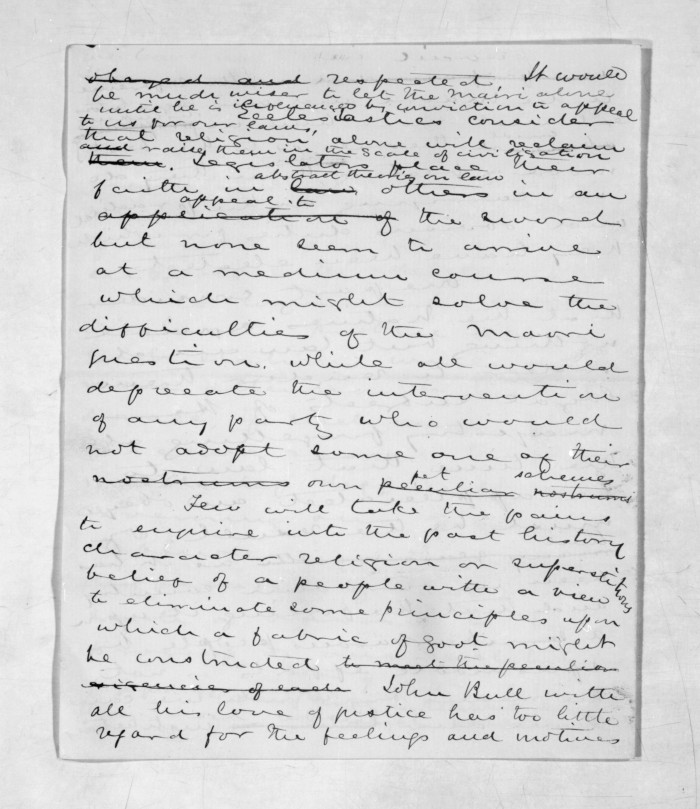 obeyed and respected. It would
be much wiser to let the Maori alone
until he is convinced by conviction to appeal
to us for our laws, Ecclesiastics consider
that religion alone will reclaim
and raise them in the scale of civilization
them. Legislators place their
abstract theories on law
faith in law others in an
appeal to
application of the sword
but none seem to arrive
at a medium course
which might solve the
difficulties of the Maori
question. While all would
deprecate the intervention
of any party who would
not adopt some one of their
pet schemes
nostrums own peculiar nostrums
Few will take the pains
to enquire into the past history
character religion or superstitious
belief of a people with a view
to eliminate some principles upon
which a fabric of govt. might
be constructed to meet the peculiar
exigencies of each John Bull with
all his love of justice has too little
regard for the feelings and motives